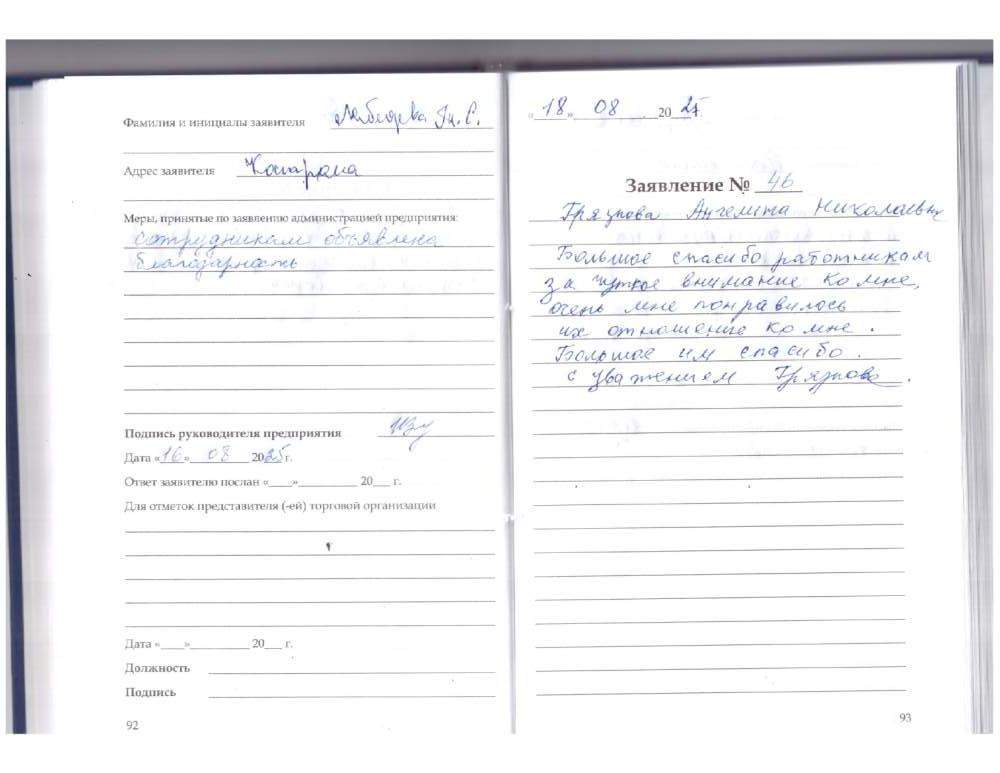 Фамилия и инициалы заявителя Лебедева Т. С.
Адрес заявителя
Меры, принятые по заявлению администрацией предприятия:
сотрудникам объявлена
благодарность
Подпись руководителя предприятия
Дата «16» 08 2025 г.
Ответ заявителю послан «____»__________ 20___ г.
Для отметок представителя (-ей) торговой организации
Дата «____»__________ 20___ г.
Должность
Подпись
92
«18» 08 2025 г.
Заявление № 46
Грязнова Ангелина Николаевна
Большое спасибо работникам
за чуткое внимание ко мне,
очень мне понравилось
их отношение ко мне.
Большое им спасибо.
с уважением Грязнова.
93